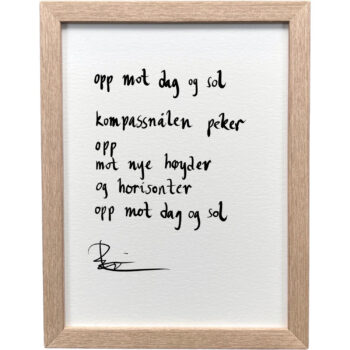 opp mot dag og sol
kompassnålen peker
opp
mot nye høyder
og horisonter
opp mot dag og sol